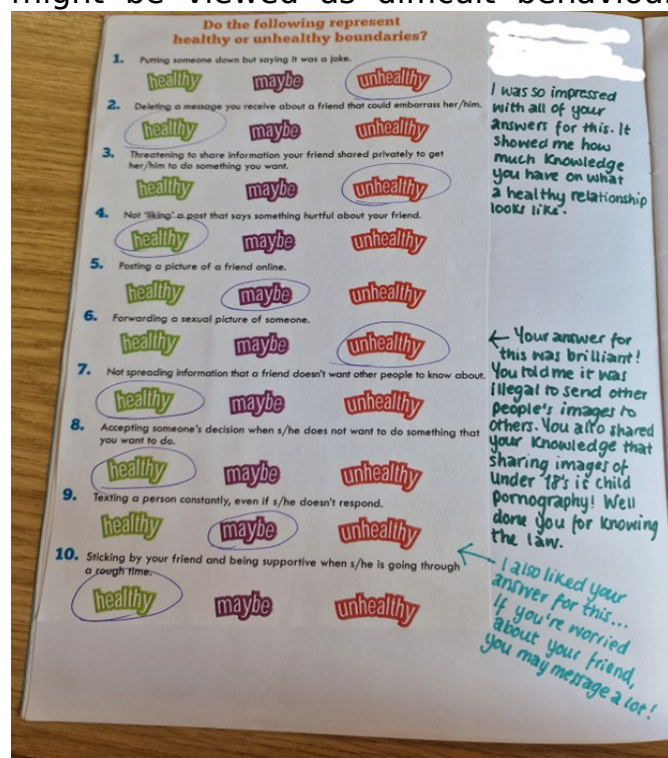 might be viewed as difficult behaviour
Do the following represent
healthy or unhealthy boundaries?
1. Putting someone down but saying it was a joke.
healthy maybe unhealthy
2. Deleting a message you receive about a friend that could embarrass her/him.
healthy maybe unhealthy
3. Threatening to share information your friend shared privately to get
her/him to do something you want.
healthy maybe unhealthy
4. Not 'liking' a post that says something hurtful about your friend.
healthy maybe unhealthy
5. Posting a picture of a friend online.
healthy maybe unhealthy
6. Forwarding a sexual picture of someone.
healthy maybe unhealthy
7. Not spreading information that a friend doesn't want other people to know about.
healthy maybe unhealthy
8. Accepting someone's decision when s/he does not want to do something that
you want to do.
healthy maybe unhealthy
9. Texting a person constantly, even if s/he doesn't respond.
healthy maybe unhealthy
10. Sticking by your friend and being supportive when s/he is going through
a rough time.
healthy maybe unhealthy
I was so impressed
with all of your
answers for this. It
showed me how
much knowledge
you have on what
a healthy relationship
looks like.
← Your answer for
this was brilliant!
You told me it was
illegal to send other
people's images to
others. You also shared
your knowledge that
sharing images of
under 18's is child
pornography! Well
done you for knowing
the law.
I also liked your
answer for this...
If you're worried
about your friend,
you may message a lot!